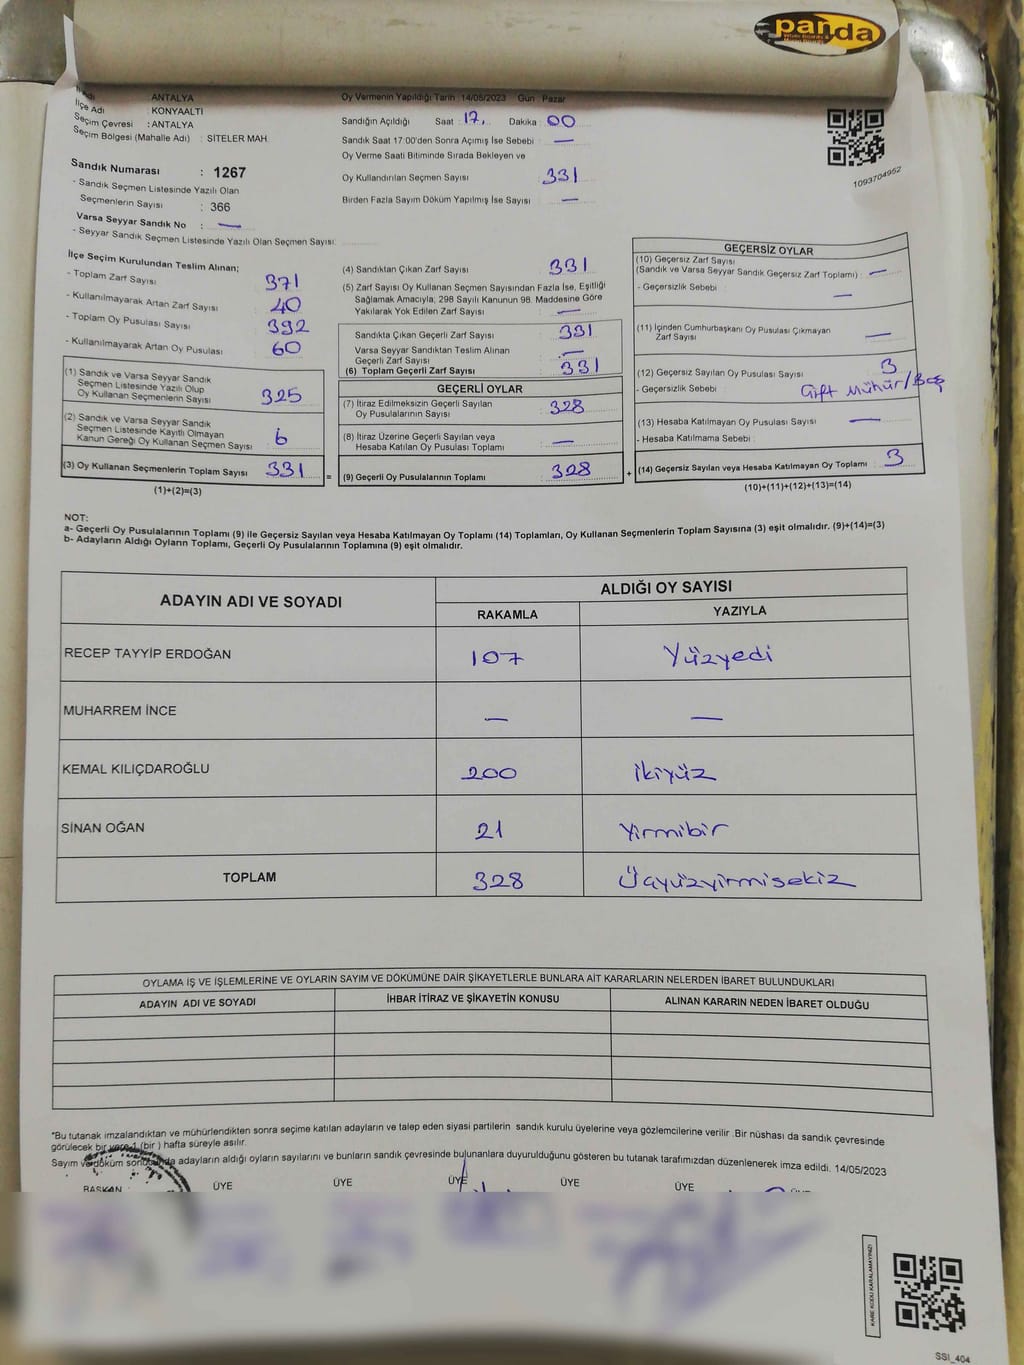 panda
Adı ANTALYA
İlçe Adı : KONYAALTI
Seçim Çevresi : ANTALYA
Seçim Bölgesi (Mahalle Adı) : SİTELER MAH.
Sandık Numarası : 1267
- Sandık Seçmen Listesinde Yazılı Olan
Seçmenlerin Sayısı : 366
Varsa Seyyar Sandık No : —
- Seyyar Sandık Seçmen Listesinde Yazılı Olan Seçmen Sayısı:
Oy Vermenin Yapıldığı Tarih :14/05/2023 Gün Pazar
Sandığın Açıldığı Saat : 17. Dakika : 00
Sandık Saat 17:00'den Sonra Açımış İse Sebebi : —
Oy Verme Saati Bitiminde Sırada Bekleyen ve
Oy Kullandırılan Seçmen Sayısı : 331
Birden Fazla Sayım Döküm Yapılmış İse Sayısı : —
1093704952
İlçe Seçim Kurulundan Teslim Alınan;
- Toplam Zarf Sayısı : 371
- Kullanılmayarak Artan Zarf Sayısı : 40
- Toplam Oy Pusulası Sayısı : 392
- Kullanılmayarak Artan Oy Pusulası : 60
(1) Sandık ve Varsa Seyyar Sandık
Seçmen Listesinde Yazılı Olup
Oy Kullanan Seçmenlerin Sayısı : 325
(2) Sandık ve Varsa Seyyar Sandık
Seçmen Listesinde Kayıtlı Olmayan
Kanun Gereği Oy Kullanan Seçmen Sayısı : 6
(3) Oy Kullanan Seçmenlerin Toplam Sayısı : 331 =
(1)+(2)=(3)
(4) Sandıktan Çıkan Zarf Sayısı : 331
(5) Zarf Sayısı Oy Kullanan Seçmen Sayısından Fazla İse, Eşitliği
Sağlamak Amacıyla, 298 Sayılı Kanunun 98. Maddesine Göre
Yakılarak Yok Edilen Zarf Sayısı : —
Sandıkta Çıkan Geçerli Zarf Sayısı : 331
Varsa Seyyar Sandıktan Teslim Alınan
Geçerli Zarf Sayısı : —
(6) Toplam Geçerli Zarf Sayısı : 331
GEÇERLİ OYLAR
(7) İtiraz Edilmeksizin Geçerli Sayılan
Oy Pusulalarının Sayısı : 328
(8) İtiraz Üzerine Geçerli Sayılan veya
Hesaba Katılan Oy Pusulası Toplamı : —
(9) Geçerli Oy Pusulalarının Toplamı : 328 +
GEÇERSİZ OYLAR
(10) Geçersiz Zarf Sayısı
(Sandık ve Varsa Seyyar Sandık Geçersiz Zarf Toplamı) : —
- Geçersizlik Sebebi : —
(11) İçinden Cumhurbaşkanı Oy Pusulası Çıkmayan
Zarf Sayısı : —
(12) Geçersiz Sayılan Oy Pusulası Sayısı : 3
- Geçersizlik Sebebi : Çift Mühür/Boş
(13) Hesaba Katılmayan Oy Pusulası Sayısı : —
- Hesaba Katılmama Sebebi :
(14) Geçersiz Sayılan veya Hesaba Katılmayan Oy Toplamı : 3
(10)+(11)+(12)+(13)=(14)
NOT:
a- Geçerli Oy Pusulalarının Toplamı (9) ile Geçersiz Sayılan veya Hesaba Katılmayan Oy Toplamı (14) Toplamları, Oy Kullanan Seçmenlerin Toplam Sayısına (3) eşit olmalıdır. (9)+(14)=(3)
b- Adayların Aldığı Oyların Toplamı, Geçerli Oy Pusulalarının Toplamına (9) eşit olmalıdır.
ADAYIN ADI VE SOYADI ALDIĞI OY SAYISI
RAKAMLA YAZIYLA
RECEP TAYYİP ERDOĞAN 107 Yüzyedi
MUHARREM İNCE — —
KEMAL KILIÇDAROĞLU 200 İkiyüz
SİNAN OĞAN 21 Yirmibir
TOPLAM 328 Üçyüzyirmisekiz
OYLAMA İŞ VE İŞLEMLERİNE VE OYLARIN SAYIM VE DÖKÜMÜNE DAİR ŞİKAYETLERLE BUNLARA AİT KARARLARIN NELERDEN İBARET BULUNDUKLARI
ADAYIN ADI VE SOYADI İHBAR İTİRAZ VE ŞİKAYETİN KONUSU ALINAN KARARIN NEDEN İBARET OLDUĞU
*Bu tutanak imzalandıktan ve mühürlendikten sonra seçime katılan adayların ve talep eden siyasi partilerin sandık kurulu üyelerine veya gözlemcilerine verilir .Bir nüshası da sandık çevresinde
görülecek bir yere 1 (bir ) hafta süreyle asılır.
Sayım ve döküm sonucunda adayların aldığı oyların sayılarını ve bunların sandık çevresinde bulunanlara duyurulduğunu gösteren bu tutanak tarafımızdan düzenlenerek imza edildi. 14/05/2023
BAŞKAN ÜYE ÜYE ÜYE ÜYE ÜYE ÜYE
KARE KODU KARALAMAYINIZ!
SSI_404